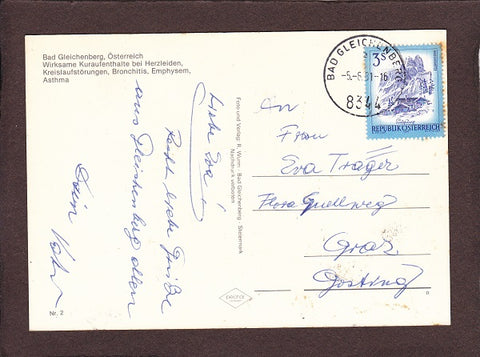 Bad Gleichenberg, Österreich
Wirksame Kuraufenthalte bei Herzleiden,
Kreislaufstörungen, Bronchitis, Emphysem,
Asthma
Liebe Eva!
Recht liebe Grüße
aus Gleichenberg
Dein Vater
Nr. 2
Foto und Verlag: R. Wurm - Bad Gleichenberg - Steiermark
Nachdruck verboten
BAD GLEICHENBERG
8344
3 S
REPUBLIK ÖSTERREICH
An
Frau
Eva Trager
Flora Quellweg
Graz
Gösting